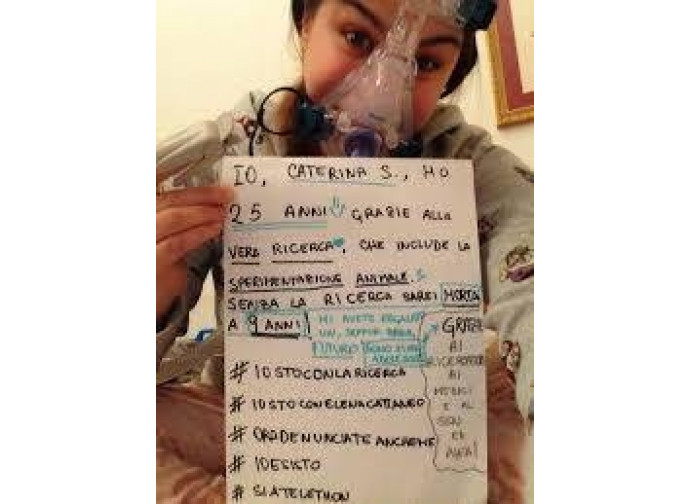 IO, CATERINA S., HO
25 ANNI GRAZIE ALLA
VERA RICERCA, CHE INCLUDE LA
SPERIMENTAZIONE ANIMALE.
SENZA LA RICERCA SAREI MORTA
A 9 ANNI!
MI AVETE REGALATO
UN, SEPPUR
FUTURO
GRAZIE
AI
RICERCATORI
AI
MEDICI
E AL
#IOSTOCONLARICERCA
#IOSTOCONELENACATTANEO
#ORADENUNCIATEANCHEME
#IOESISTO
#SIATELETHON